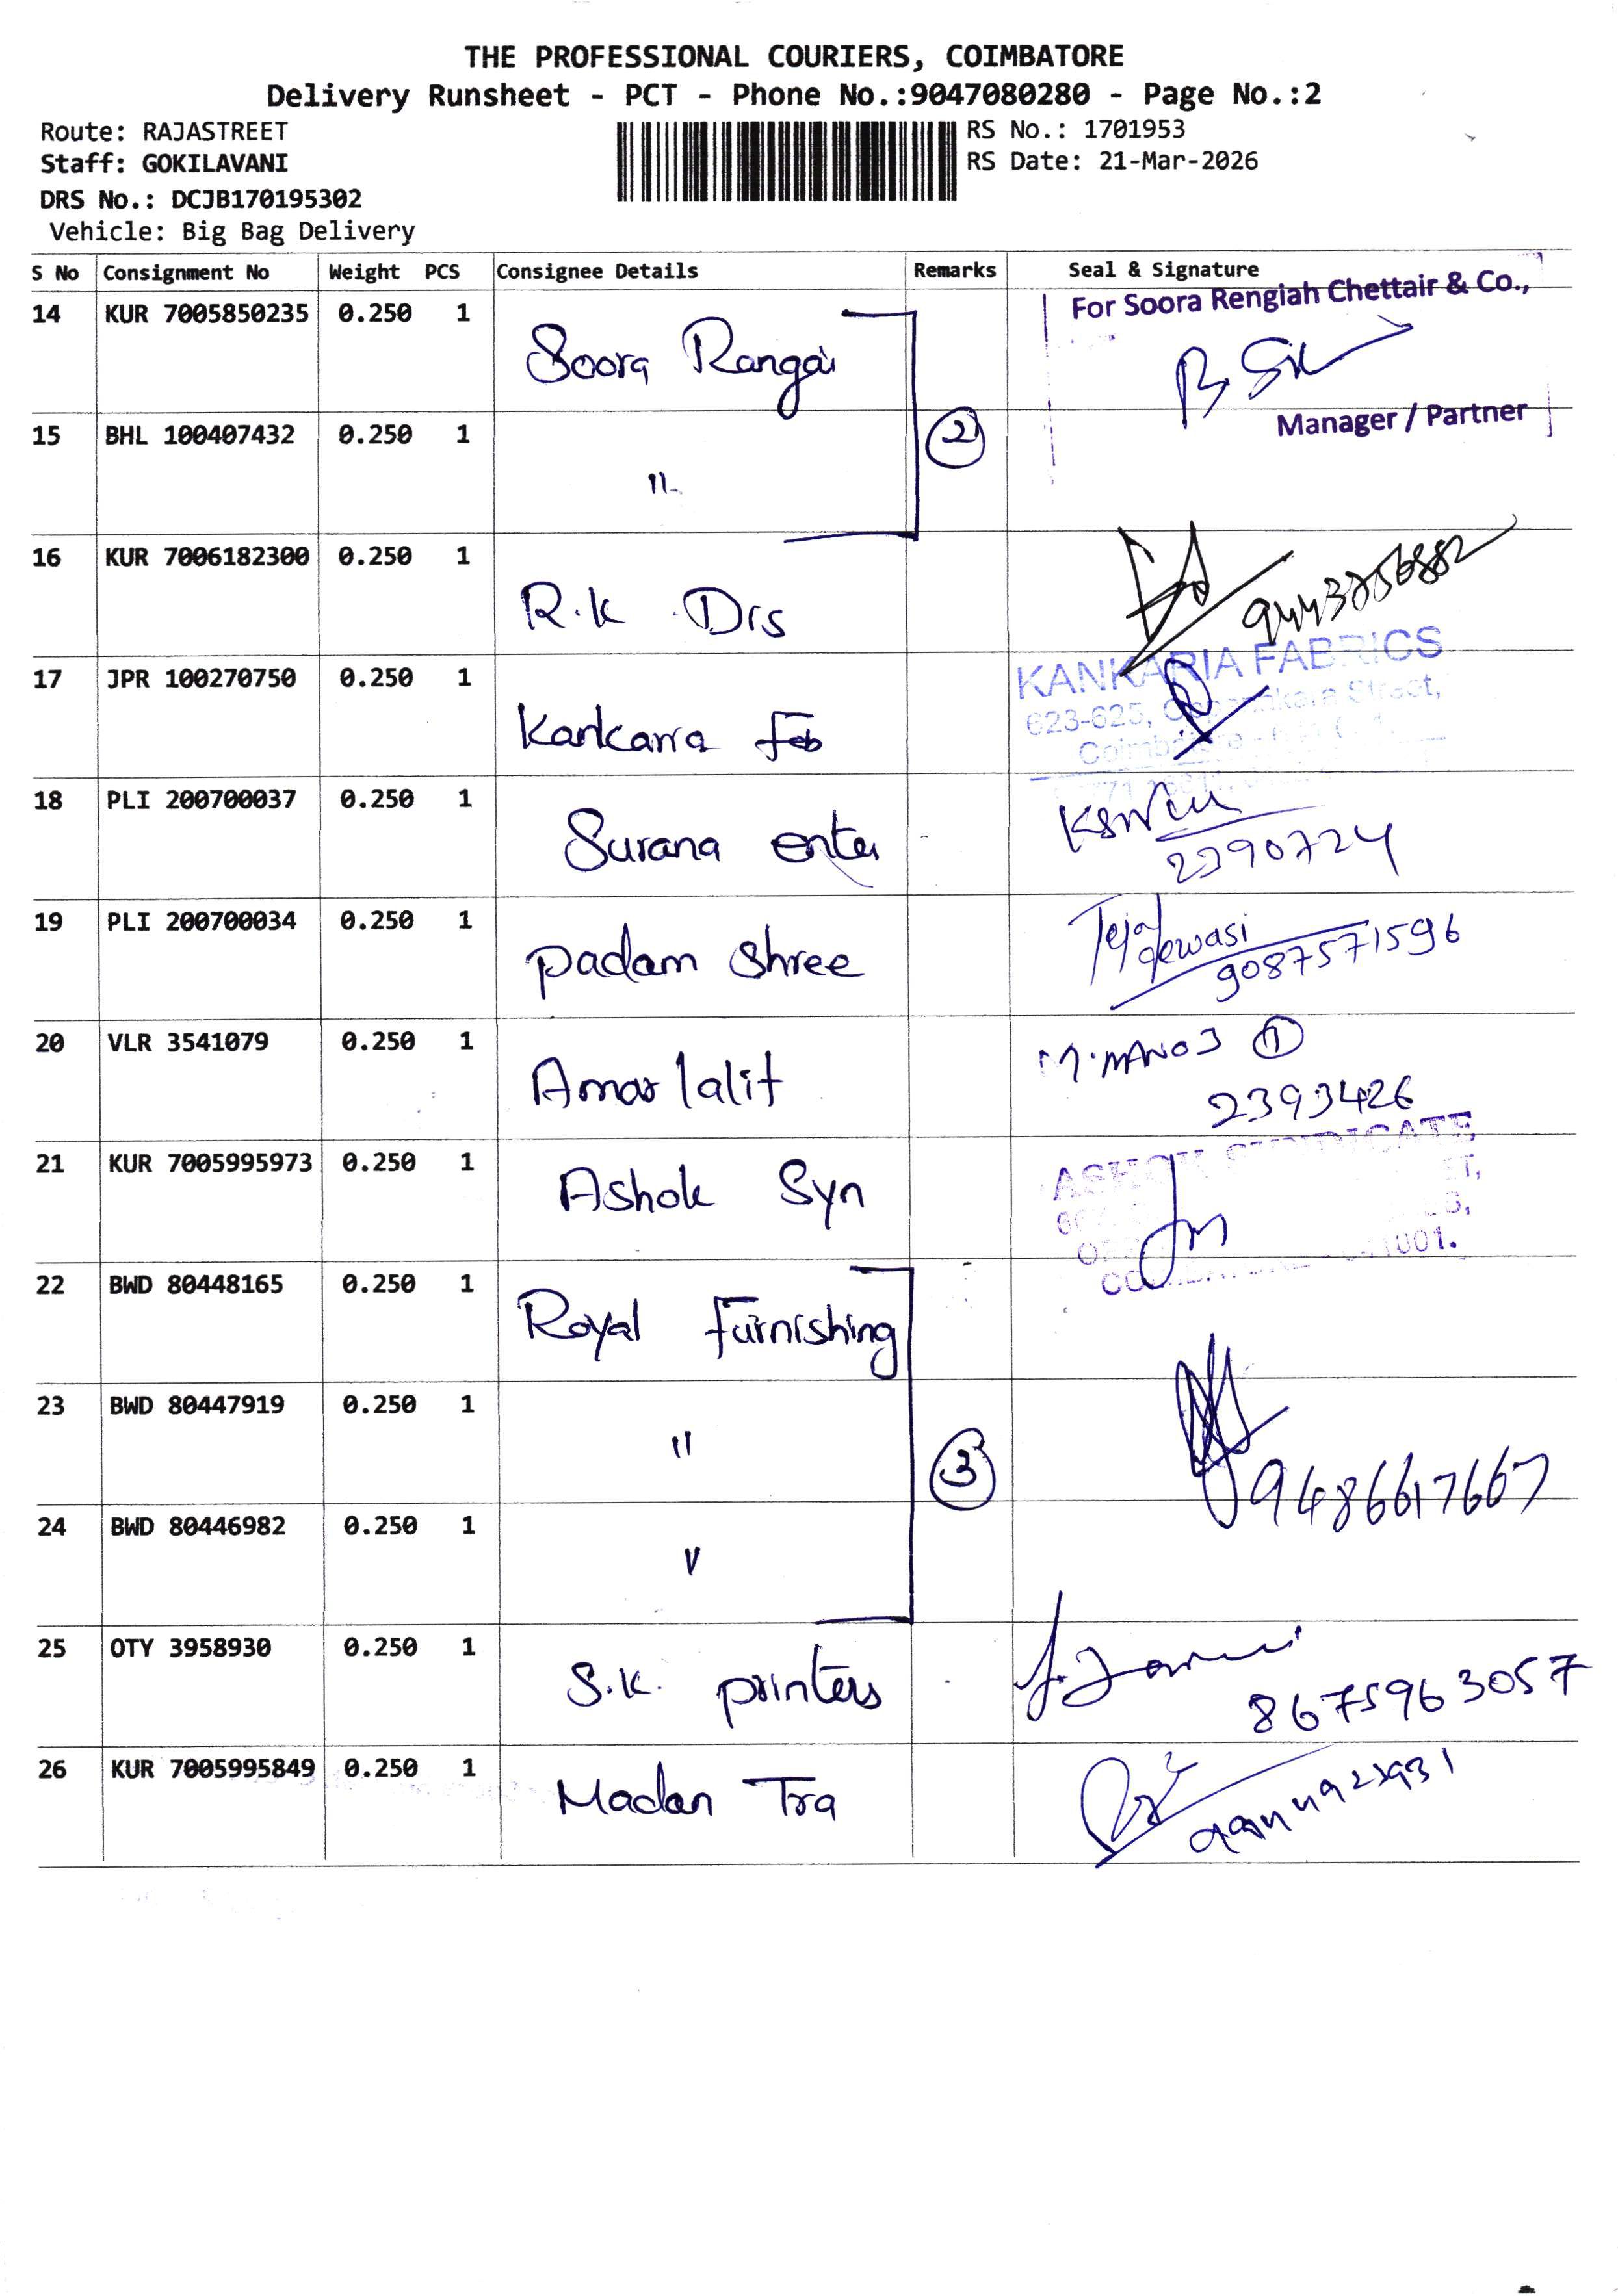 THE PROFESSIONAL COURIERS, COIMBATORE
Delivery Runsheet - PCT - Phone No.:9047080280 - Page No.:2
Route: RAJASTREET
RS No.: 1701953
Staff: GOKILAVANI
RS Date: 21-Mar-2026
DRS No.: DCJB170195302
Vehicle: Big Bag Delivery
S No Consignment No Weight PCS Consignee Details Remarks Seal & Signature
For Soora Rengiah Chettair & Co.,
14 KUR 7005850235 0.250 1 Soora Rangai
Manager / Partner
15 BHL 100407432 0.250 1 " 2
16 KUR 7006182300 0.250 1 R.K Drs
KANKARIA FABRICS
17 JPR 100270750 0.250 1 Kankaria Fab
623-625, Street,
18 PLI 200700037 0.250 1 Surana enter
2390724
19 PLI 200700034 0.250 1 Padam Shree Teja dewasi
9087571596
20 VLR 3541079 0.250 1 Amar lalit M.MANOJ 1
2393426
ASHOK SYNDICATE
21 KUR 7005995973 0.250 1 Ashok Syn
22 BWD 80448165 0.250 1 Royal Furnishing
23 BWD 80447919 0.250 1 " 3
9486617667
24 BWD 80446982 0.250 1 "
25 OTY 3958930 0.250 1 S.K. printers
8675963057
26 KUR 7005995849 0.250 1 Madan Tra